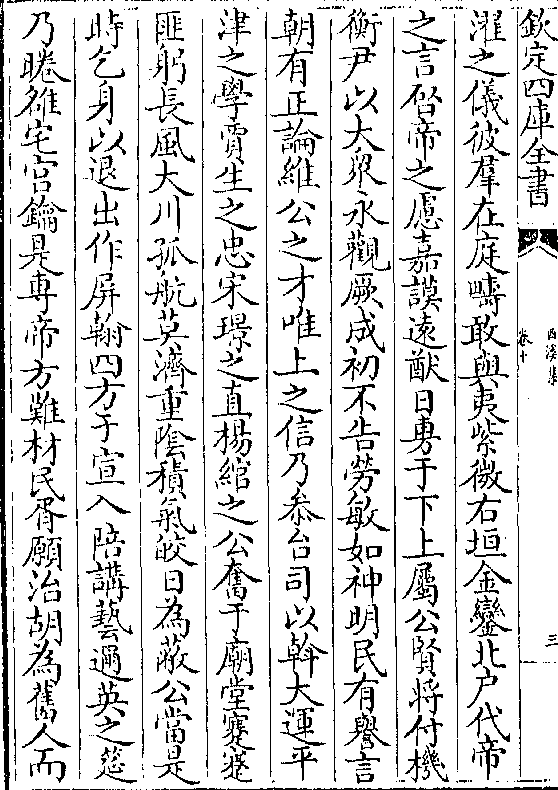 欽定四庫全書
西溪集
卷十
三
濯之儀彼羣在庭疇敢與夷紫微右垣金鑾北户代帝
之言啓帝之慮嘉謨遠猷日勇于下上屬公賢將付機
衡尹以大衆永觀厥成初不告勞敏如神明民有譽言
朝有正論維公之才唯上之信乃叅台司以斡大運平
津之學賈生之忠宋璟之直楊綰之公奮于廟堂蹇蹇
匪躬長風大川孤航莫濟重陰積氣皎日為蔽公當是
時乞身以退出作屏翰四方于宣入陪講藝邇英之筵
乃睠雒宅宫鑰是専帝方難材民胥願治胡為舊人而